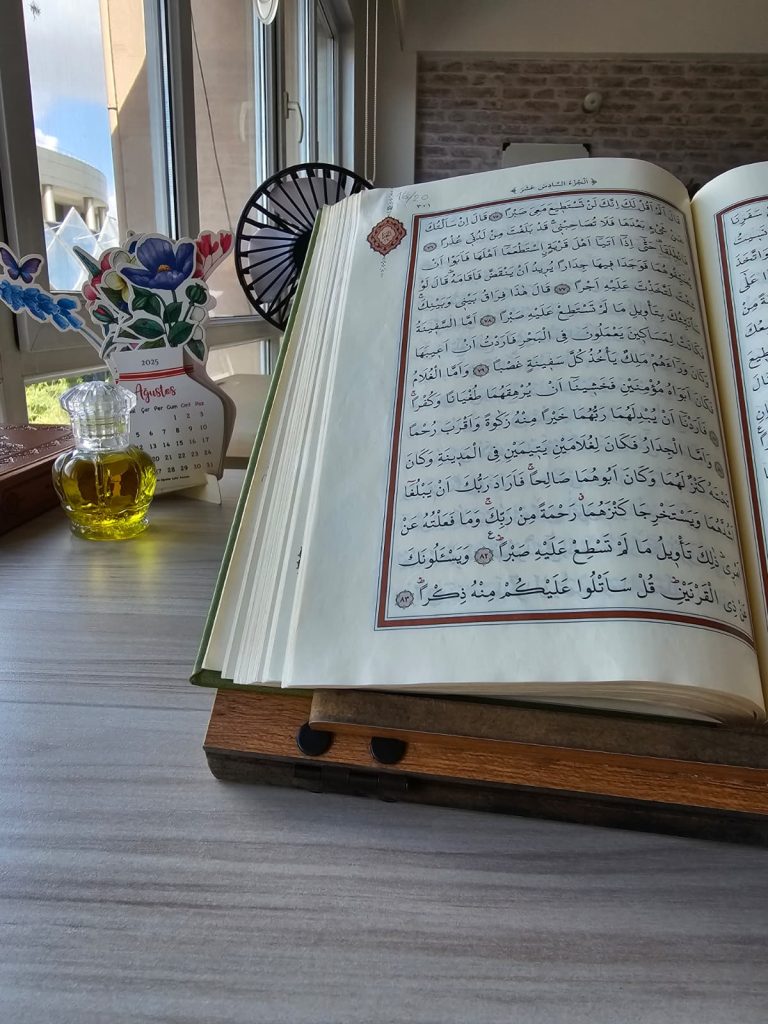 ﴿ اَلْجُزْءُ السَّادِسُ عَشَرَ ﴾
16/20
٣٠١
قَالَ اَلَمْ اَقُلْ لَكَ اِنَّكَ لَنْ تَسْتَط۪يعَ مَعِيَ صَبْرًا ﴿٧٥﴾ قَالَ اِنْ سَاَلْتُكَ
عَنْ شَيْءٍ بَعْدَهَا فَلَا تُصَاحِبْن۪يۚ قَدْ بَلَغْتَ مِنْ لَدُنّ۪ي عُذْرًا ﴿٧٦﴾
فَانْطَلَقَا حَتّٰٓى اِذَٓا اَتَيَٓا اَهْلَ قَرْيَةٍۨ اسْتَطْعَمَٓا اَهْلَهَا فَاَبَوْا اَنْ
يُضَيِّفُوهُمَا فَوَجَدَا ف۪يهَا جِدَارًا يُر۪يدُ اَنْ يَنْقَضَّ فَاَقَامَهُۜ قَالَ لَوْ
شِئْتَ لَتَّخَذْتَ عَلَيْهِ اَجْرًا ﴿٧٧﴾ قَالَ هٰذَا فِرَاقُ بَيْن۪ي وَبَيْنِكَۚ
سَاُنَبِّئُكَ بِتَأْو۪يلِ مَا لَمْ تَسْتَطِعْ عَلَيْهِ صَبْرًا ﴿٧٨﴾ اَمَّا السَّف۪ينَةُ
فَكَانَتْ لِمَسَاك۪ينَ يَعْمَلُونَ فِي الْبَحْرِ فَاَرَدْتُ اَنْ اَع۪يبَهَا
وَكَانَ وَرَٓاءَهُمْ مَلِكٌ يَأْخُذُ كُلَّ سَف۪ينَةٍ غَصْبًا ﴿٧٩﴾ وَاَمَّا الْغُلَامُ
فَكَانَ اَبَوَاهُ مُؤْمِنَيْنِ فَخَش۪ينَٓا اَنْ يُرْهِقَهُمَا طُغْيَانًا وَكُفْرًاۚ ﴿٨٠﴾
فَاَرَدْنَٓا اَنْ يُبْدِلَهُمَا رَبُّهُمَا خَيْرًا مِنْهُ زَكٰوةً وَاَقْرَبَ رُحْمًا
﴿٨١﴾ وَاَمَّا الْجِدَارُ فَكَانَ لِغُلَامَيْنِ يَت۪يمَيْنِ فِي الْمَد۪ينَةِ وَكَانَ
تَحْتَهُ كَنْزٌ لَهُمَا وَكَانَ اَبُوهُمَا صَالِحًاۚ فَاَرَادَ رَبُّكَ اَنْ يَبْلُغَٓا
اَشُدَّهُمَا وَيَسْتَخْرِجَا كَنْزَهُمَاۗ رَحْمَةً مِنْ رَبِّكَۚ وَمَا فَعَلْتُهُ عَنْ
اَمْر۪يۜ ذٰلِكَ تَأْو۪يلُ مَا لَمْ تَسْطِعْ عَلَيْهِ صَبْرًا ﴿٨٢﴾ وَيَسْـَٔلُونَكَ
عَنْ ذِي الْقَرْنَيْنِۜ قُلْ سَاَتْلُوا عَلَيْكُمْ مِنْهُ ذِكْرًاۜ ﴿٨٣﴾
2025
Ağustos
Çar Per Cum Cmt Paz
1 2 3
5 8 9 10
12 13 14 15 16 17
20 21 22 23 24
27 28 29 30 31